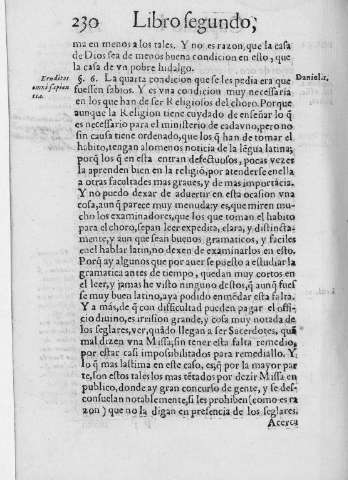 230 Libro segundo,
ma en menos a los tales. Y no es razon, que la casa
de Dios sea de menos buena condicion en esto, que
la casa de vn pobre hidalgo.
Eruditos
omni sapien
tia.
§. 6. La quarta condicion que se les pedia era que
Daniel.1.
fuessen sabios. Y es vna condicion muy necessaria
en los que han de ser Religiosos del choro. Porque
aunque la Religion tiene cuydado de enseñar lo q̃
es necessario para el ministerio de cada vno, pero no
sin causa tiene ordenado, que los q̃ han de tomar el
habito, tengan alomenos noticia de la lẽgua latina;
porq̃ los q̃ en esta entran defectuosos, pocas vezes
la aprenden bien en la religiõ, por atenderse en ella
a otras facultades mas graues, y de mas importãcia.
Y no puedo dexar de aduertir en esta ocasion vna
cosa, aunq̃ parece muy menuda: y es, que miren mu-
cho los examinadores, que los que toman el habito
para el choro, sepan leer expedita, clara, y distincta-
mente, y aun que sean buenos gramaticos, y faciles
en el hablar latin, no dexen de examinarlos en esto.
Porq̃ ay algunos que por auerse puesto a estudiar la
gramatica antes de tiempo, quedan muy cortos en
el leer, y jamas he visto ninguno destos, q̃ aunq̃ fues
se muy buen latino, aya podido enmẽdar esta falta.
Y a mas, de q̃ con difficultad pueden pagar el offi-
cio diuino, es irrision grande, y cosa muy notada de
los seglares, ver, quãdo llegan a ser Sacerdotes, quã
mal dizen vna Missa, sin tener esta falta remedio,
por estar casi imposibilitados para remediallo. Y
lo q̃ mas lastima en este caso, es, q̃ por la mayor par
te, son estos tales los mas tẽtados por dezir Missa en
publico, donde ay gran concurso de gente, y se des-
consuelan notablemente, si les prohiben (como es ra
zon) que no la digan en presencia de los seglares.
Acerca